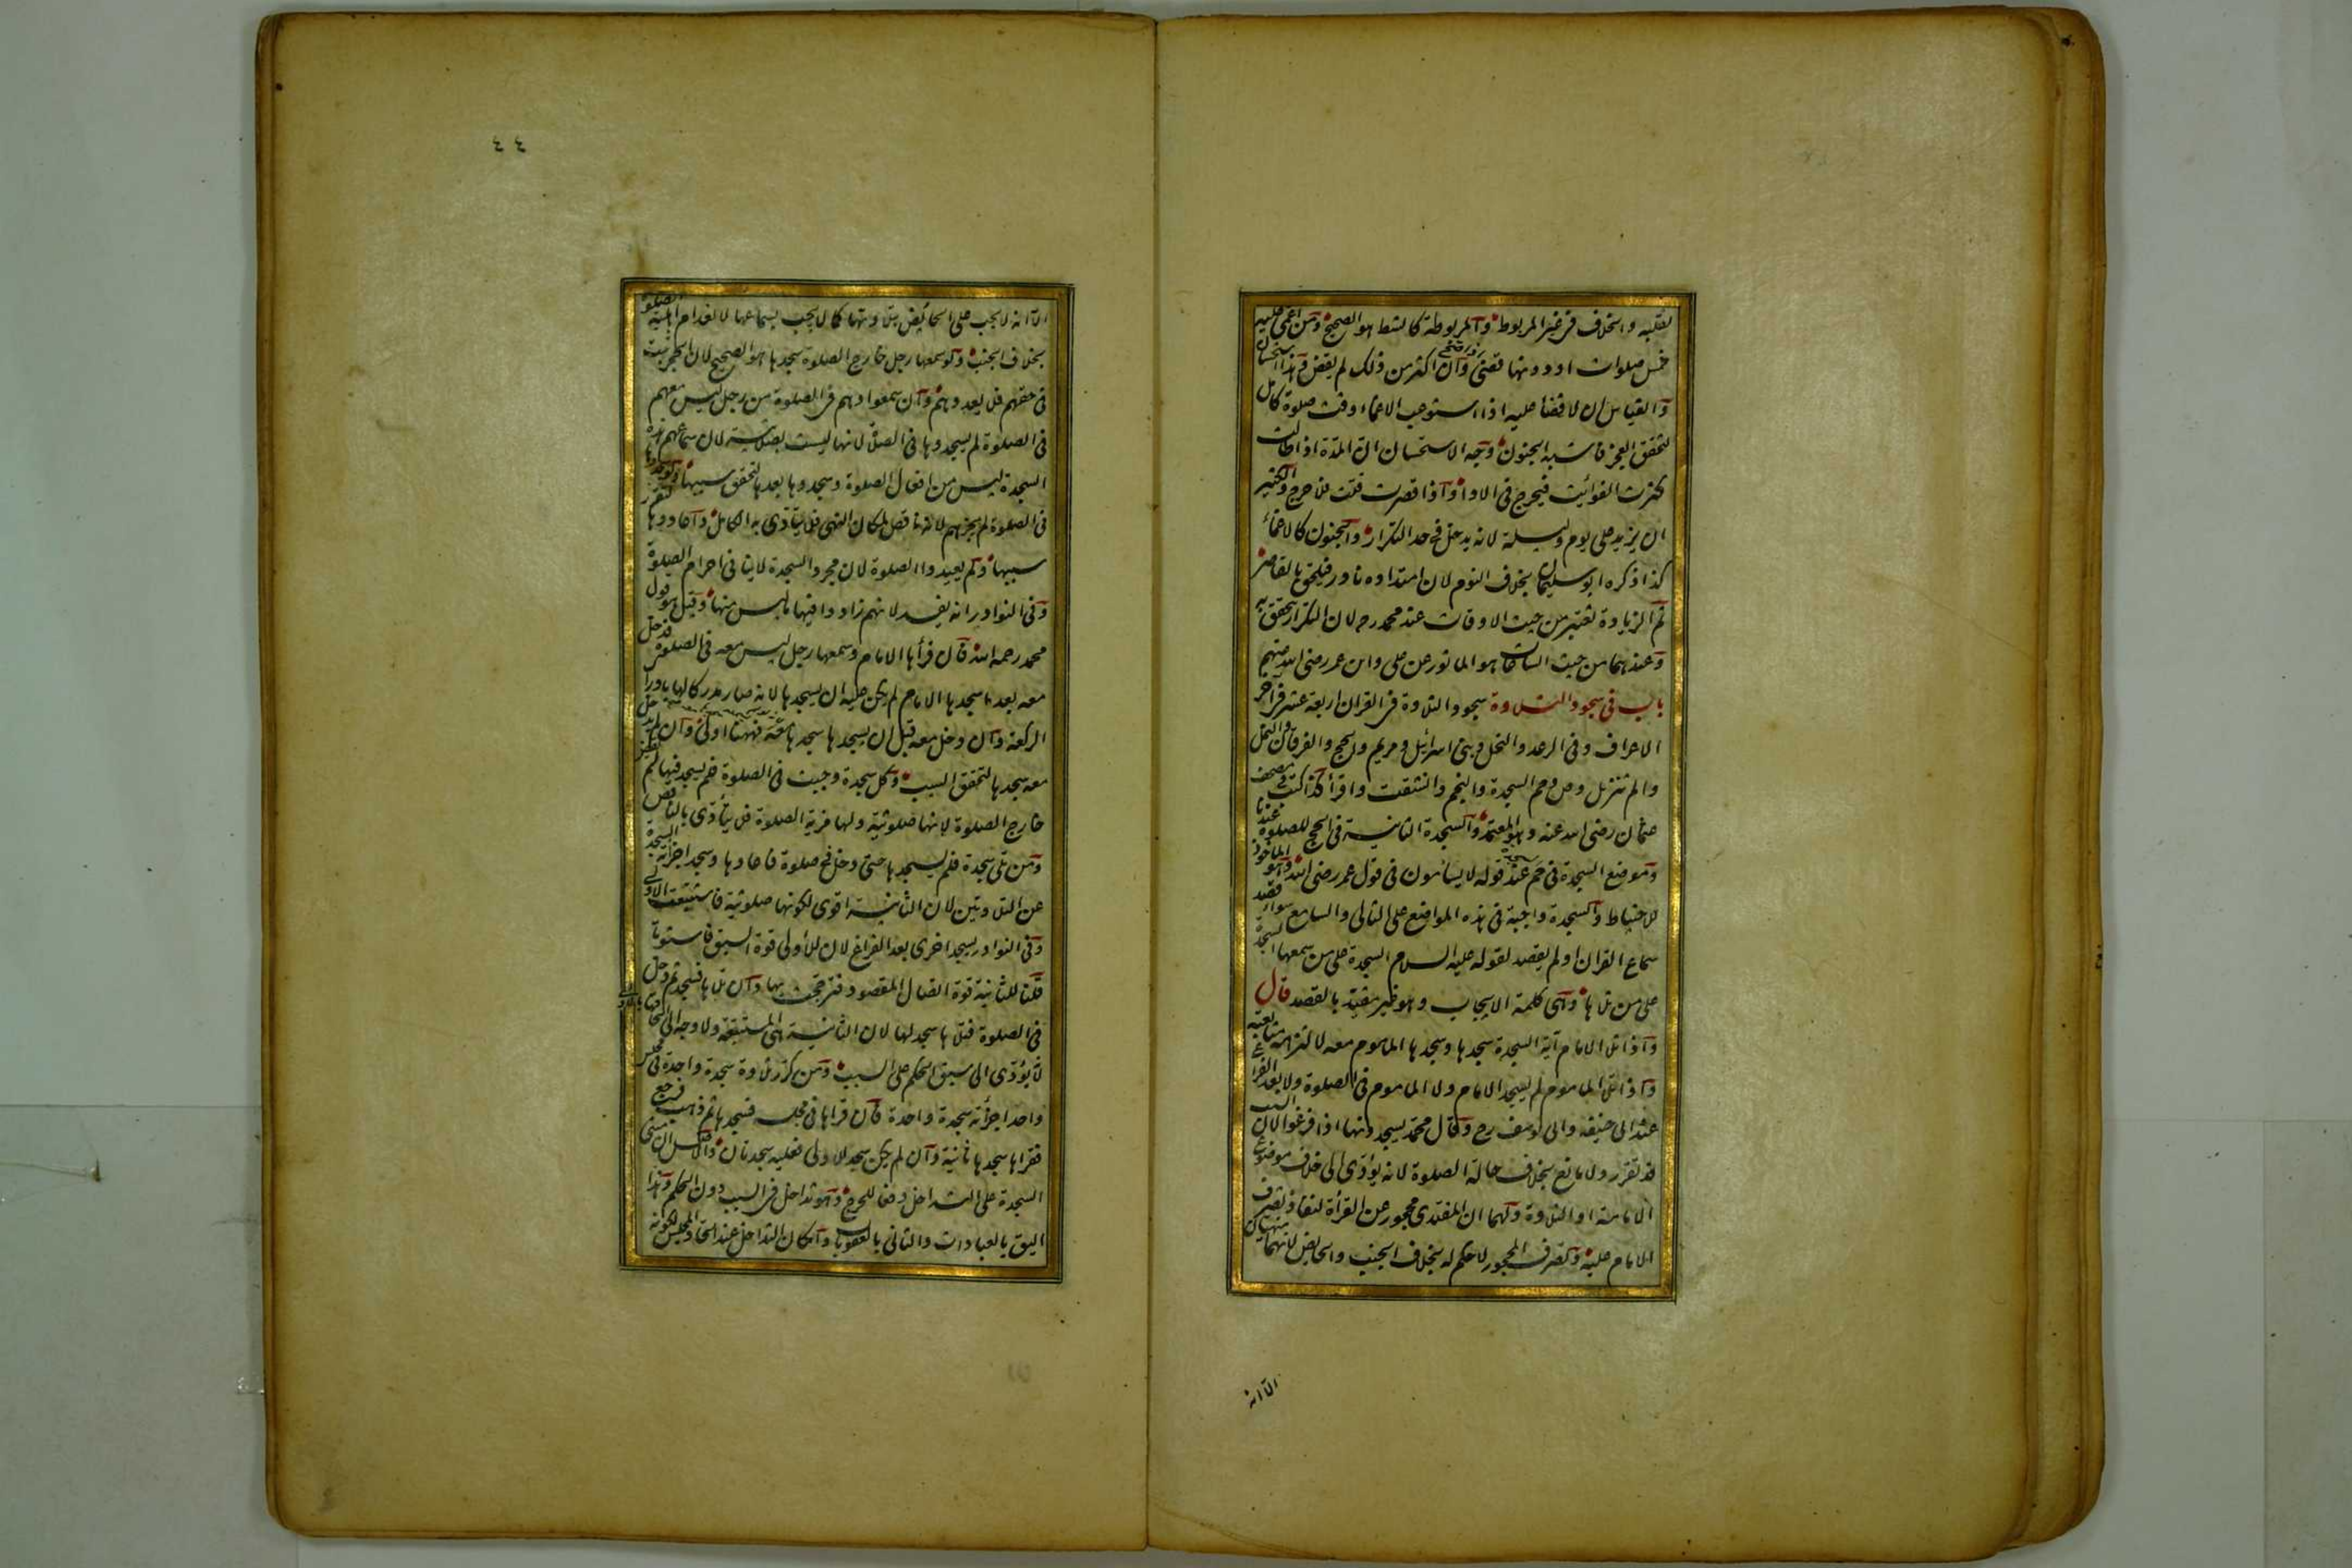 لعليه واختلاف فى غير المربوط والمربوطة كالشط هو الصحيح ومن اغمى عليه
خمس صلوات او دونها قضى وان كان اكثر من ذلك لم يقض وهذا استحسان
والقياس ان لا قضاء عليه اذا استوعب الاغماء وقت صلوة كامل
لتحقق العجز فاشبه الجنون وجه الاستحسان ان المدة اذا طالت
كثرت الفوائت فيحرج فى الاداء واذا قصرت قلت فلا حرج والكثير
ان يزيد على يوم وليلة لانه يدخل فى حد التكرار والجنون كالاغماء
كذا ذكره ابو سليمان بخلاف النوم لان امتداده نادر فيلحق بالقاصر
ثم الزيادة تعتبر من حيث الاوقات عند محمد رح لان التكرار يتحقق به
وعندهما من حيث الساعات هو الماثور عن على وابن عمر رضى الله عنهم
باب فى سجود التلاوة سجود التلاوة فى القران اربعة عشر فى آخر
الاعراف وفى الرعد والنحل وبنى اسرائيل ومريم والحج والفرقان والنمل
والم تنزيل وص وحم السجدة والنجم وانشقت واقرأ كذا كتب فى مصحف
عثمان رضى الله عنه وهو المعتمد والسجدة الثانية فى الحج للصلوة عندنا
وموضع السجدة فى حم عند قوله لا يسأمون فى قول عمر رضى الله وهو الماخوذ
للاحتياط والسجدة واجبة فى هذه المواضع على التالى والسامع سواء قصد
سماع القران او لم يقصد لقوله عليه السلام السجدة على من سمعها السجدة
على من تلاها وهى كلمة الايجاب وهو غير مقيد بالقصد قال
واذا تلا الامام آية السجدة سجدها وسجدها الماموم معه لالتزامه متابعته
واذا تلا الماموم لم يسجد الامام ولا الماموم فى الصلوة ولا بعد الفراغ
عند ابى حنيفة وابى يوسف رح وقال محمد يسجدونها اذا فرغوا لان السبب
قد تقرر ولا مانع بخلاف حالة الصلوة لانه يؤدى الى خلاف موضوع
الامامة او التلاوة ولهما ان المقتدى محجور عن القرأة لنفاذ تصرف
الامام عليه وتصرف المحجور لا حكم له بخلاف الجنب والحائض لانهما منهيان
الا انه
٤٤
الا انه لا يجب على الحائض بتلاوتها كما لا يجب بسماعها لانعدام اهلية الصلوة
بخلاف الجنب ولو سمعها رجل خارج الصلوة سجدها هو الصحيح لان الحجر ثبت
فى حقهم فلا يعدوهم وان سمعوا وهم فى الصلوة من رجل ليس معهم
فى الصلوة لم يسجدوها فى الصلوة لانها ليست بصلاتية لان سماعهم هذه
السجدة ليس من افعال الصلوة وسجدوها بعدها لتحقق سببها ولو سجدوها
فى الصلوة لم يجزهم لانه ناقص لمكان النهى فلا يتأدى به الكامل واعادوها لتقرر
سببها ولم يعيدوا الصلوة لان مجرد السجدة لا ينافى احرام الصلوة
وفى النوادر انه يفسد لانهم زادوا فيها ما ليس منها وقيل هو قول
محمد رحمه الله فان قرأها الامام وسمعها رجل ليس معه فى الصلوة فدخل
معه بعد ما سجدها الامام لم يكن عليه ان يسجدها لانه صار مدركا لها بادراك
الركعة وان دخل معه قبل ان يسجدها سجدها معه فههنا اولى وان لم يدخل
معه سجدها لتحقق السبب وكل سجدة وجبت فى الصلوة فلم يسجد فيها لم تقض
خارج الصلوة لانها صلوتية ولها مزية الصلوة فلا يتأدى بالناقص
ومن تلى سجدة فلم يسجدها حتى دخل فى صلوة فاعادها وسجد اجزأته السجدة
عن التلاوتين لان الثانية اقوى لكونها صلوتية فاستتبعت الاولى
وفى النوادر يسجد اخرى بعد الفراغ لان للاولى قوة السبق فاستوتا
قلنا للثانية قوة اتصال المقصود فترجحت بها وان تلاها فسجد ثم دخل
فى الصلوة فتلاها سجد لها لان الثانية هى المستتبعة ولا وجه الى الحاقها بالاولى
لانه يؤدى الى سبق الحكم على السبب ومن كرر تلاوة سجدة واحدة فى مجلس
واحد اجزأته سجدة واحدة فان قرأها فى مجلسه فسجدها ثم ذهب فرجع
فقرأها سجدها ثانية وان لم يكن سجد للاولى فعليه سجدتان والاصل ان مبنى
السجدة على التداخل دفعا للحرج وهو تداخل فى السبب دون الحكم وهذا
اليق بالعبادات والثانى بالعقوبات وامكان التداخل عند اتحاد المجلس لكونه